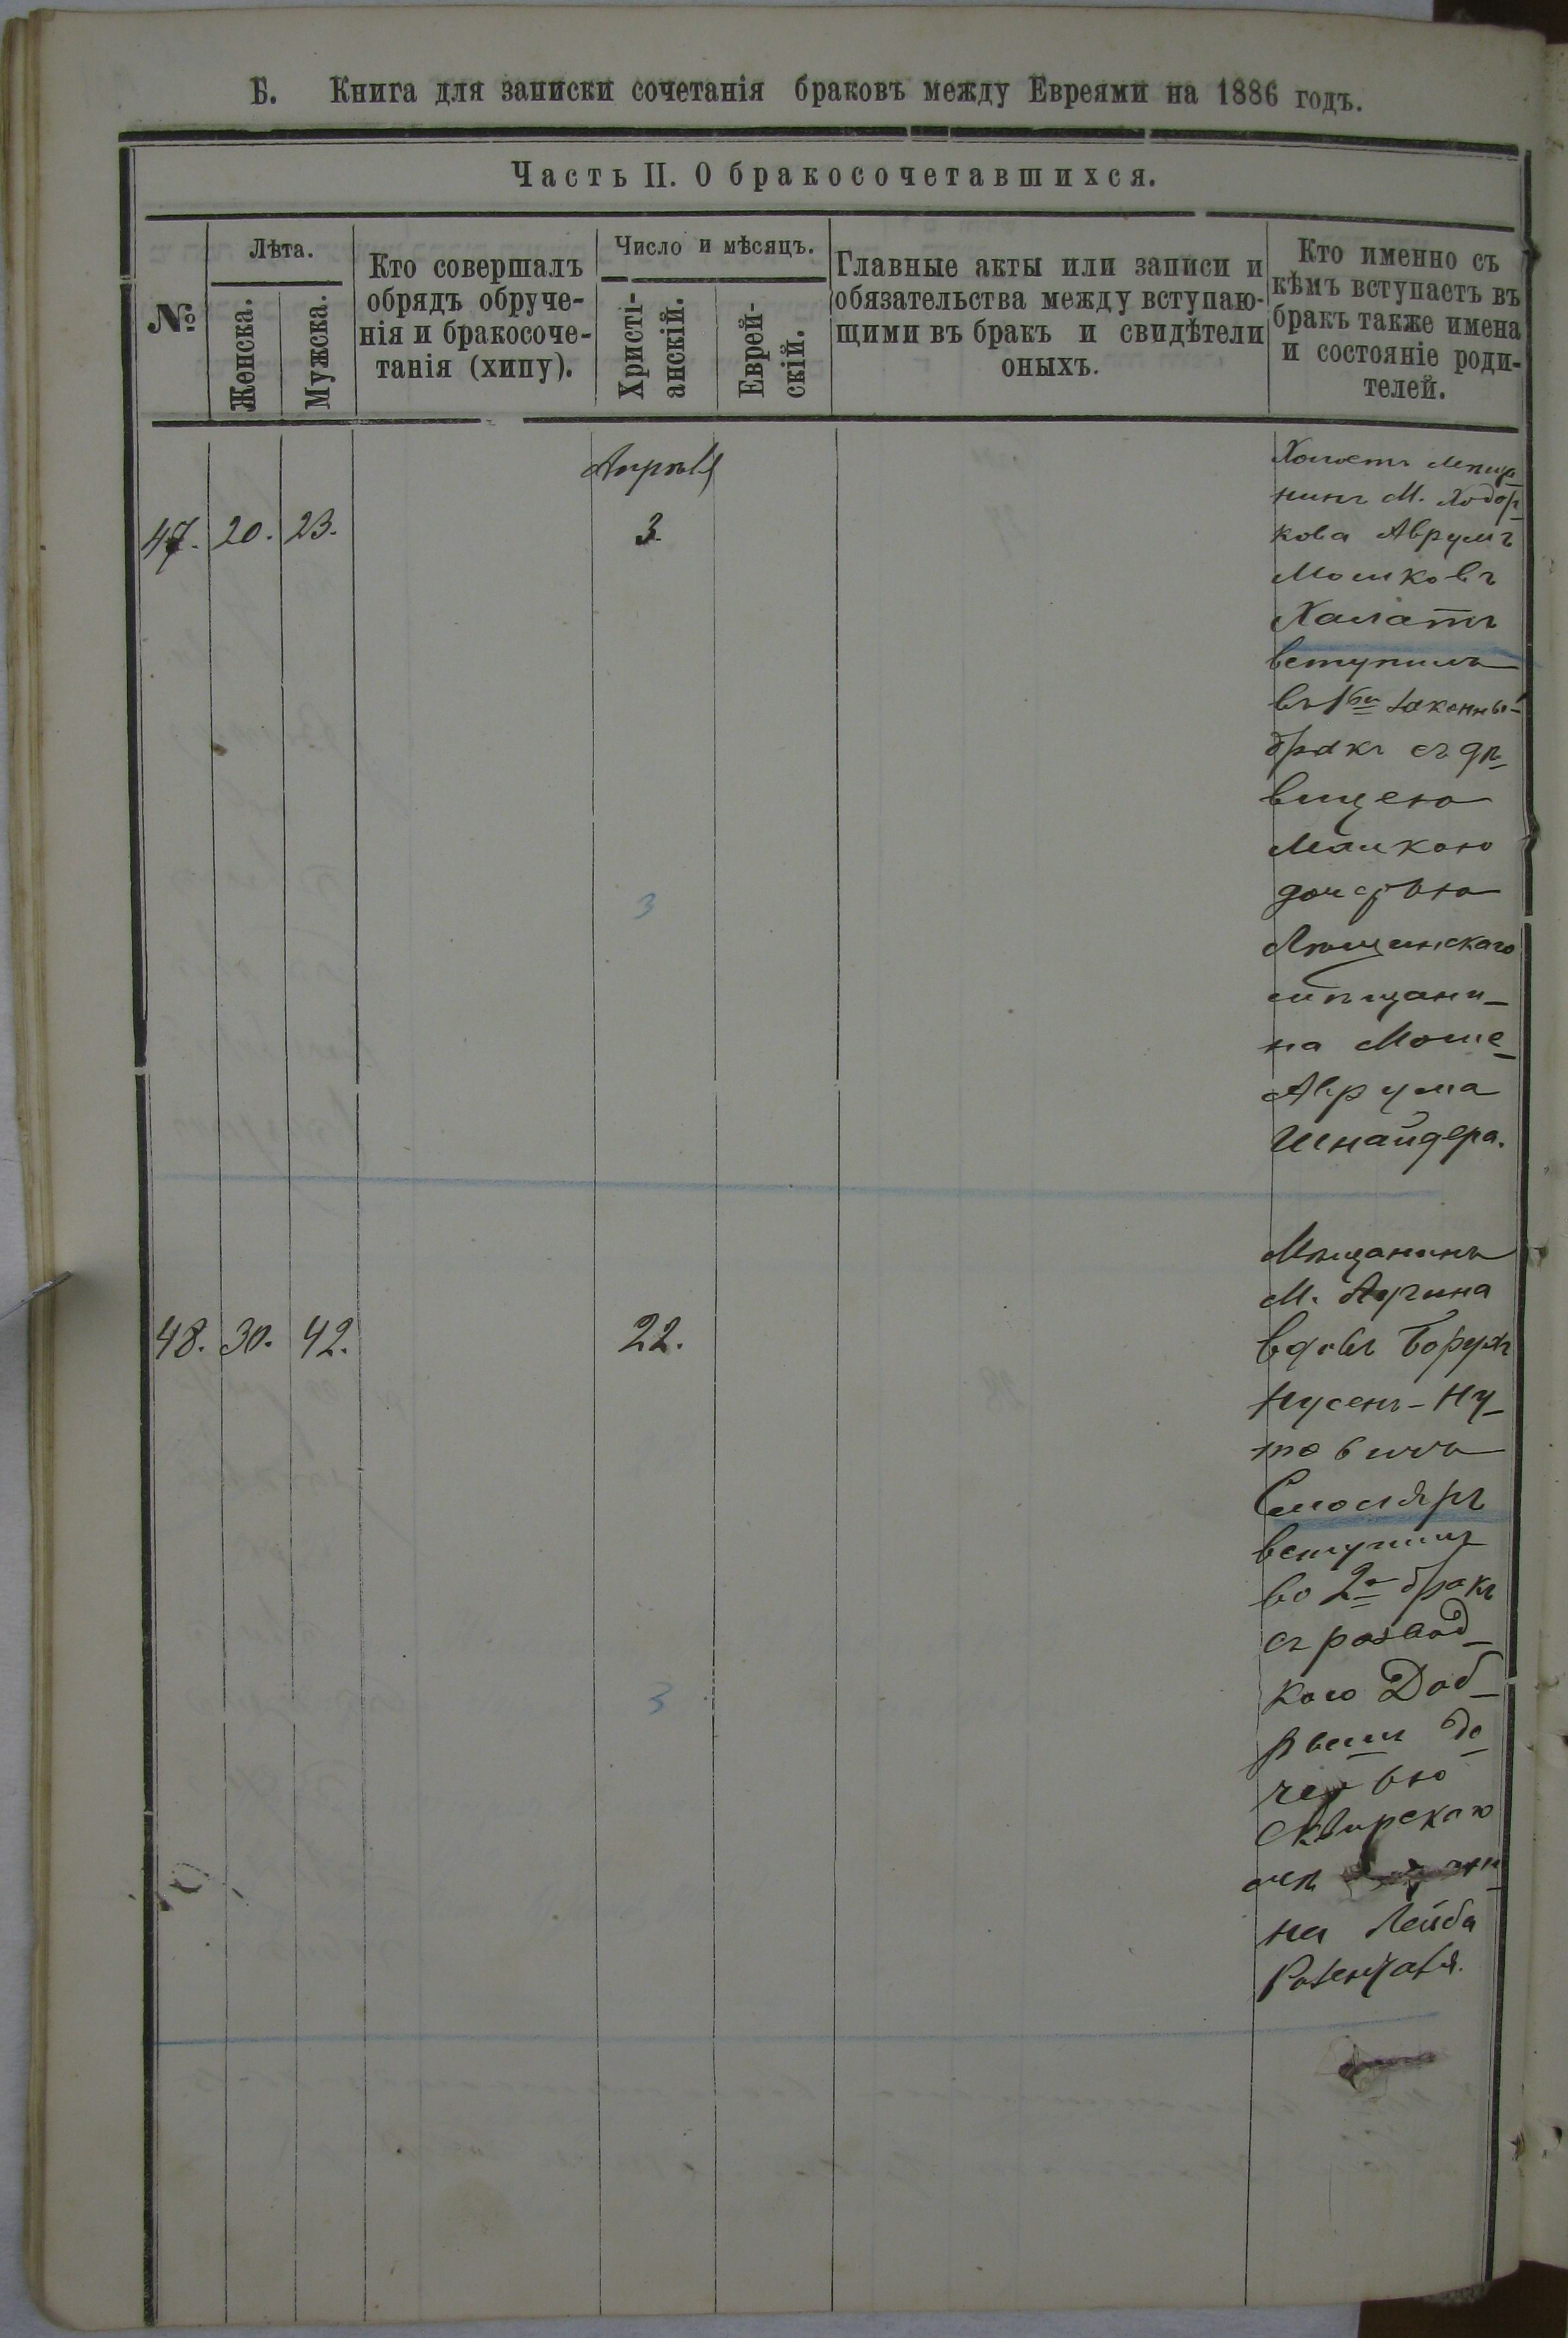 Б. Книга для записки сочетанія браковъ между Евреями на 1886 годъ.
Часть II. О бракосочетавшихся.
№
Лѣта.
Женска.
Мужска.
Кто совершалъ
обрядъ обруче-
нія и бракосоче-
танія (хипу).
Число и мѣсяцъ.
Христі-
анскій.
Еврей-
скій.
Главные акты или записи и
обязательства между вступаю-
щими въ бракъ и свидѣтели
оныхъ.
Кто именно съ
кѣмъ вступаетъ въ
бракъ также имена
и состояніе роди-
телей.
Апрѣля
47. 20. 23.
3.
Холостъ мѣща
нинъ М. Ходор
кова Аврумъ
Мошковъ
Халатъ
вступилъ
въ законны
бракъ съ дѣ
вицею
дочерью
мѣщани-
на Моше
Аврума
Шнайдера.
3
48. 30. 42.
22.
Мѣщанинъ
М.
вдовъ Борухъ
Нусенъ-Ну
товичъ
Смоляръ
вступилъ
во 2й бракъ
съ развод
кою Доб
рысш до
черью
Сквирскаго
мѣ
на Лейба
3